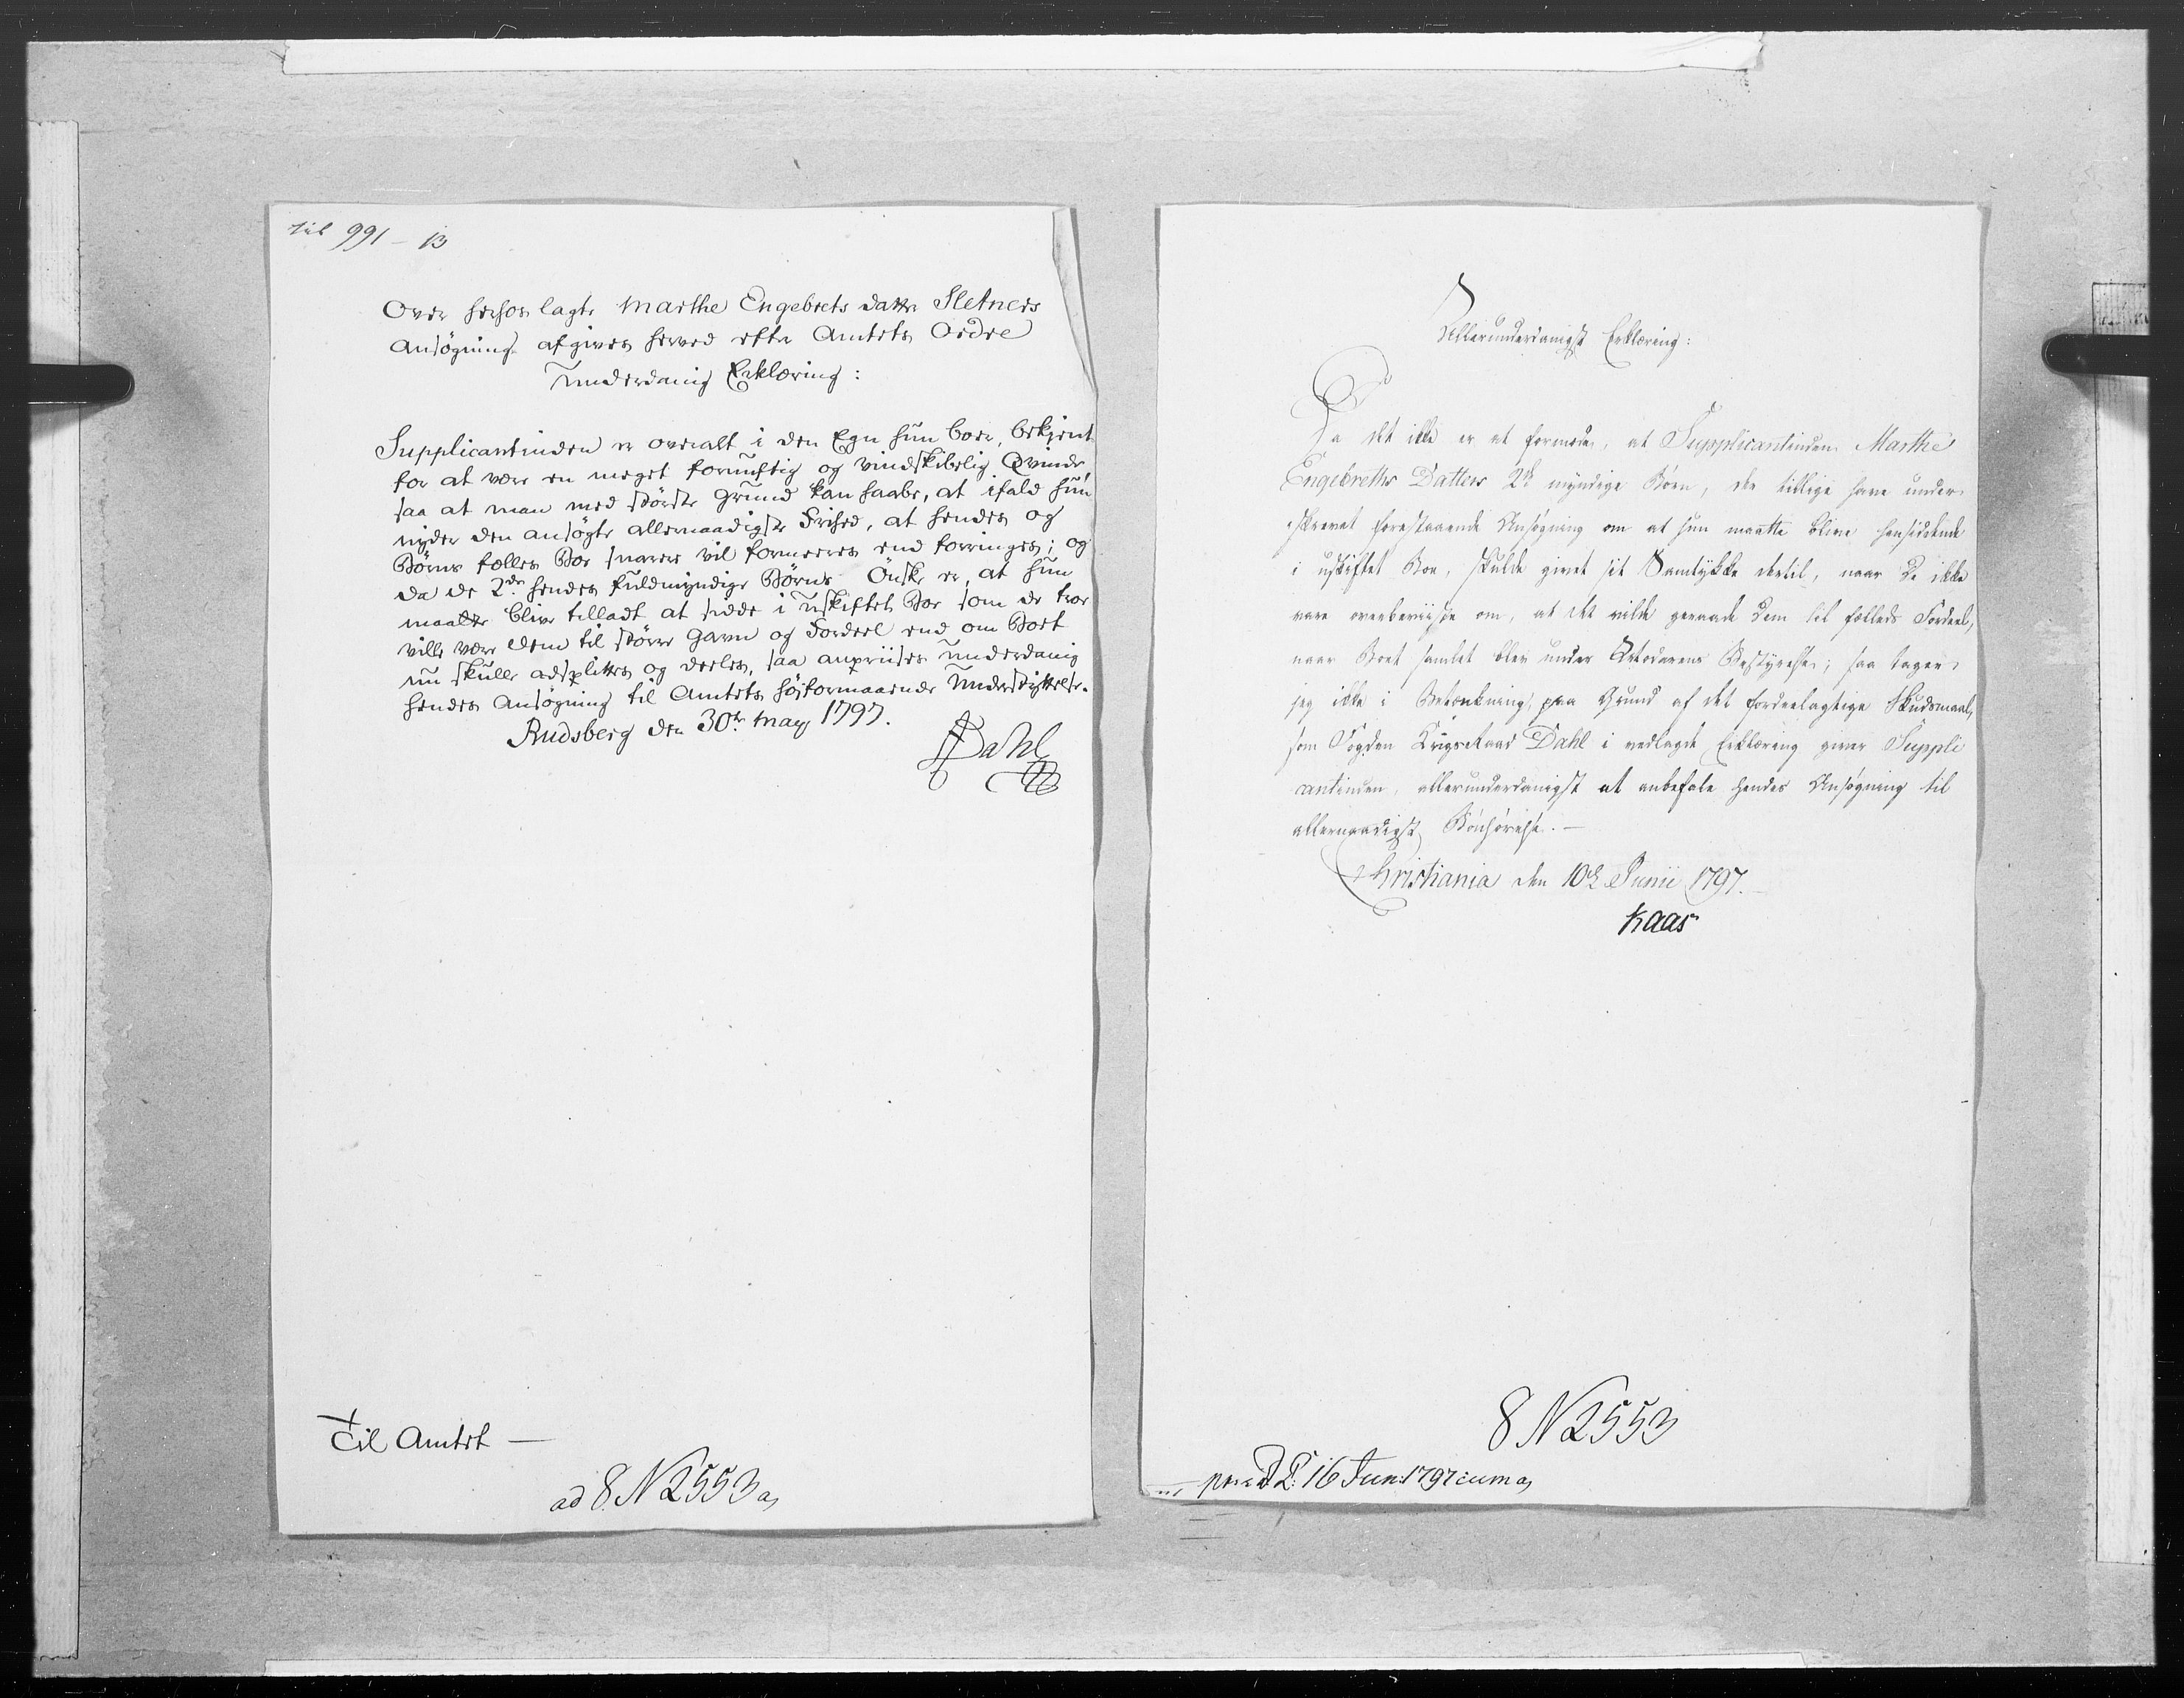 til 991 - B
Over hershos lagte Marthe Engebrets datter Sletners
Ansøgning afgives herved efter Amtets Ordre
Underdanig Erklæring:
Supplicantinden er overalt i den Egn hun boer, bekjent
for at være en meget fornuftig og vindskibelig Qvinde,
saa at man med største Grund kan haabe, at ifald hun
nyder den ansøgte allernaadigste Frihed, at hendes og
Børns fælles Boe snarere vil formeeres end forringes; og
da de 2de hendes fuldmyndige Børns Ønske er, at hun
maatte blive tilladt at sidde i uskiftet Boe som de troe
ville være dem til større Gavn og Fordeel end om Boet
nu skulle adsplittes og deeles, saa anpriises underdanig
hendes Ansøgning til Amtets høiformaaende Understøttelse.
Rudsberg den 30te May 1797.
Dahl
Til Amtet —
ad 8. N 2553 a,
Allerunderdanigst Erklæring:
Da det ikke er at formode, at Supplicantinden Marthe
Engebreths Datters 2de myndige Børn, der tillige have under-
skrevet forestaaende Ansøgning om at hun maatte blive hensiddende
i uskiftet Boe, skulde givet sit Samtykke dertil, naar De ikke
vare overbeviiste om, at det vilde geraade Dem til fælleds Fordeel,
naar Boet samlet blev under Moderens Bestyrelse; saa tager
jeg ikke i Betænkning, paa Grund af det fordeelagtige Skudsmaal,
som Fogden Krigsraad Dahl i vedlagde Erklæring giver Suppli
cantinden, allerunderdanigst at anbefale hendes Ansøgning til
allernaadigst Bønhørelse. —
Christiania den 10de Junii 1797.
Kaas
8 N 2553
præs D. 16 Jun: 1797 cum a,